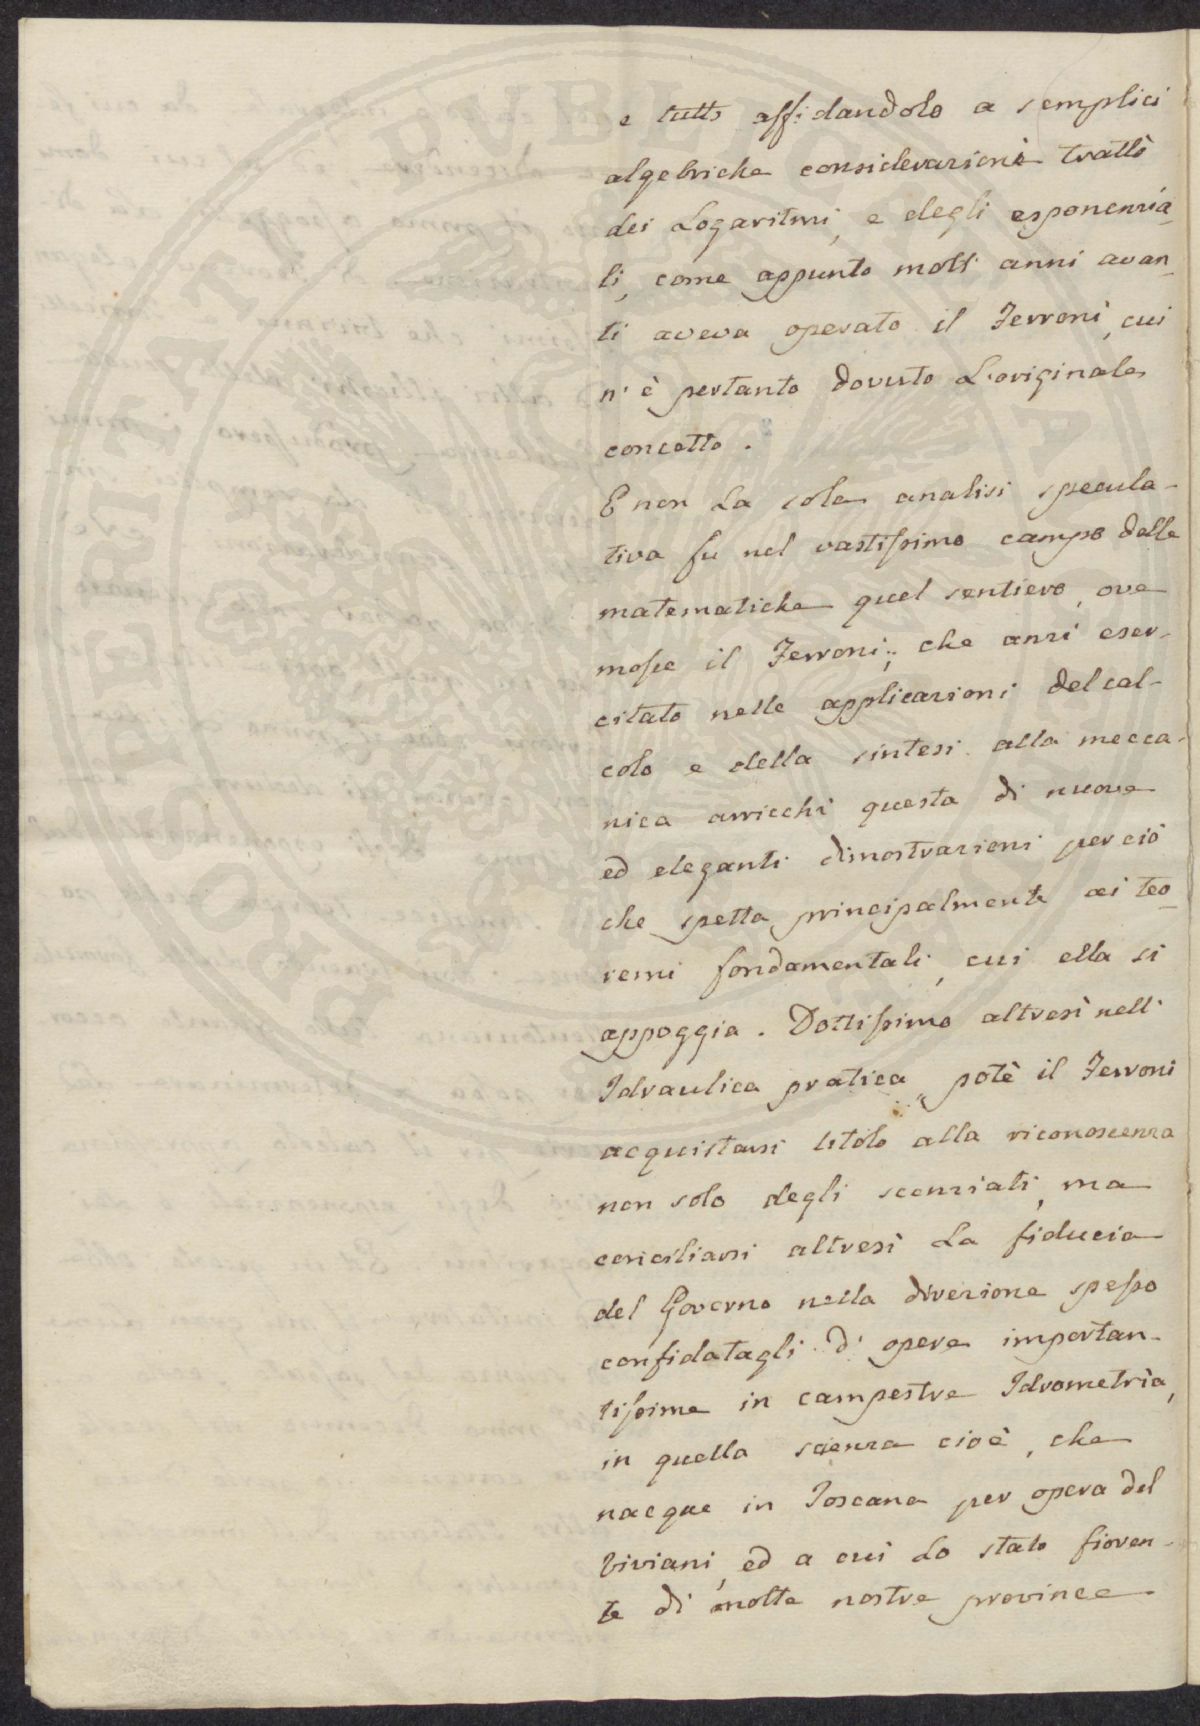 e tutto affidandolo a semplici
algebriche considerazioni trattò
dei Logaritmi, e degli esponenzia-
li, come appunto molti anni avan-
ti aveva operato il Ferroni, cui
n'è pertanto dovuto L'originale
concetto.
E non La sola analisi specula-
tiva fu nel vastissimo campo delle
matematiche quel sentiero, ove
mosse il Ferroni; che anzi eser-
citato nelle applicazioni del cal-
colo e della sintesi alla mecca-
nica arricchì questa di nuove
ed eleganti dimostrazioni per ciò
che spetta principalmente ai teo-
remi fondamentali, cui ella si
appoggia. Dottissimo altresì nell'
Idraulica pratica potè il Ferroni
acquistarsi titolo alla riconoscenza
non solo degli scenziati, ma
conciliarsi altresì La fiducia
del Governo nella direzione spesso
confidatagli d'opere importan-
tissime in campestre Idrometria,
in quella scienza cioè, che
nacque in Toscana per opera del
Viviani, ed a cui Lo stato fioren-
te di molte nostre province